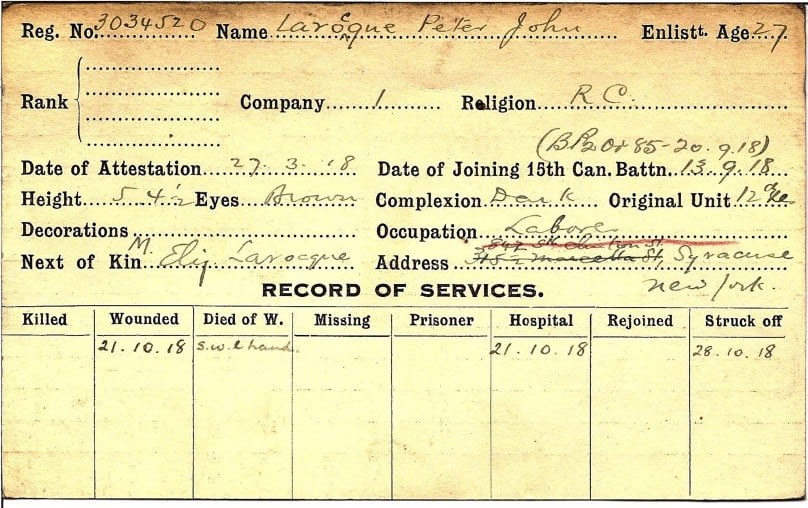 Reg. No. 3034520 Name Larocque Peter John Enlistt. Age 27
Rank Company 1 Religion R C.
(B P2 Or 85-20.9.18)
Date of Attestation 27.3.18 Date of Joining 15th Can. Battn. 13.9.18
Height 5 4½ Eyes Brown Complexion Dark Original Unit 12th Res
Decorations Occupation Laborer
Next of Kin M. Eliz Larocque Address Syracuse
New York.
RECORD OF SERVICES.
Killed Wounded Died of W. Missing Prisoner Hospital Rejoined Struck off
21.10.18 S.W. L hand. 21.10.18 28.10.18